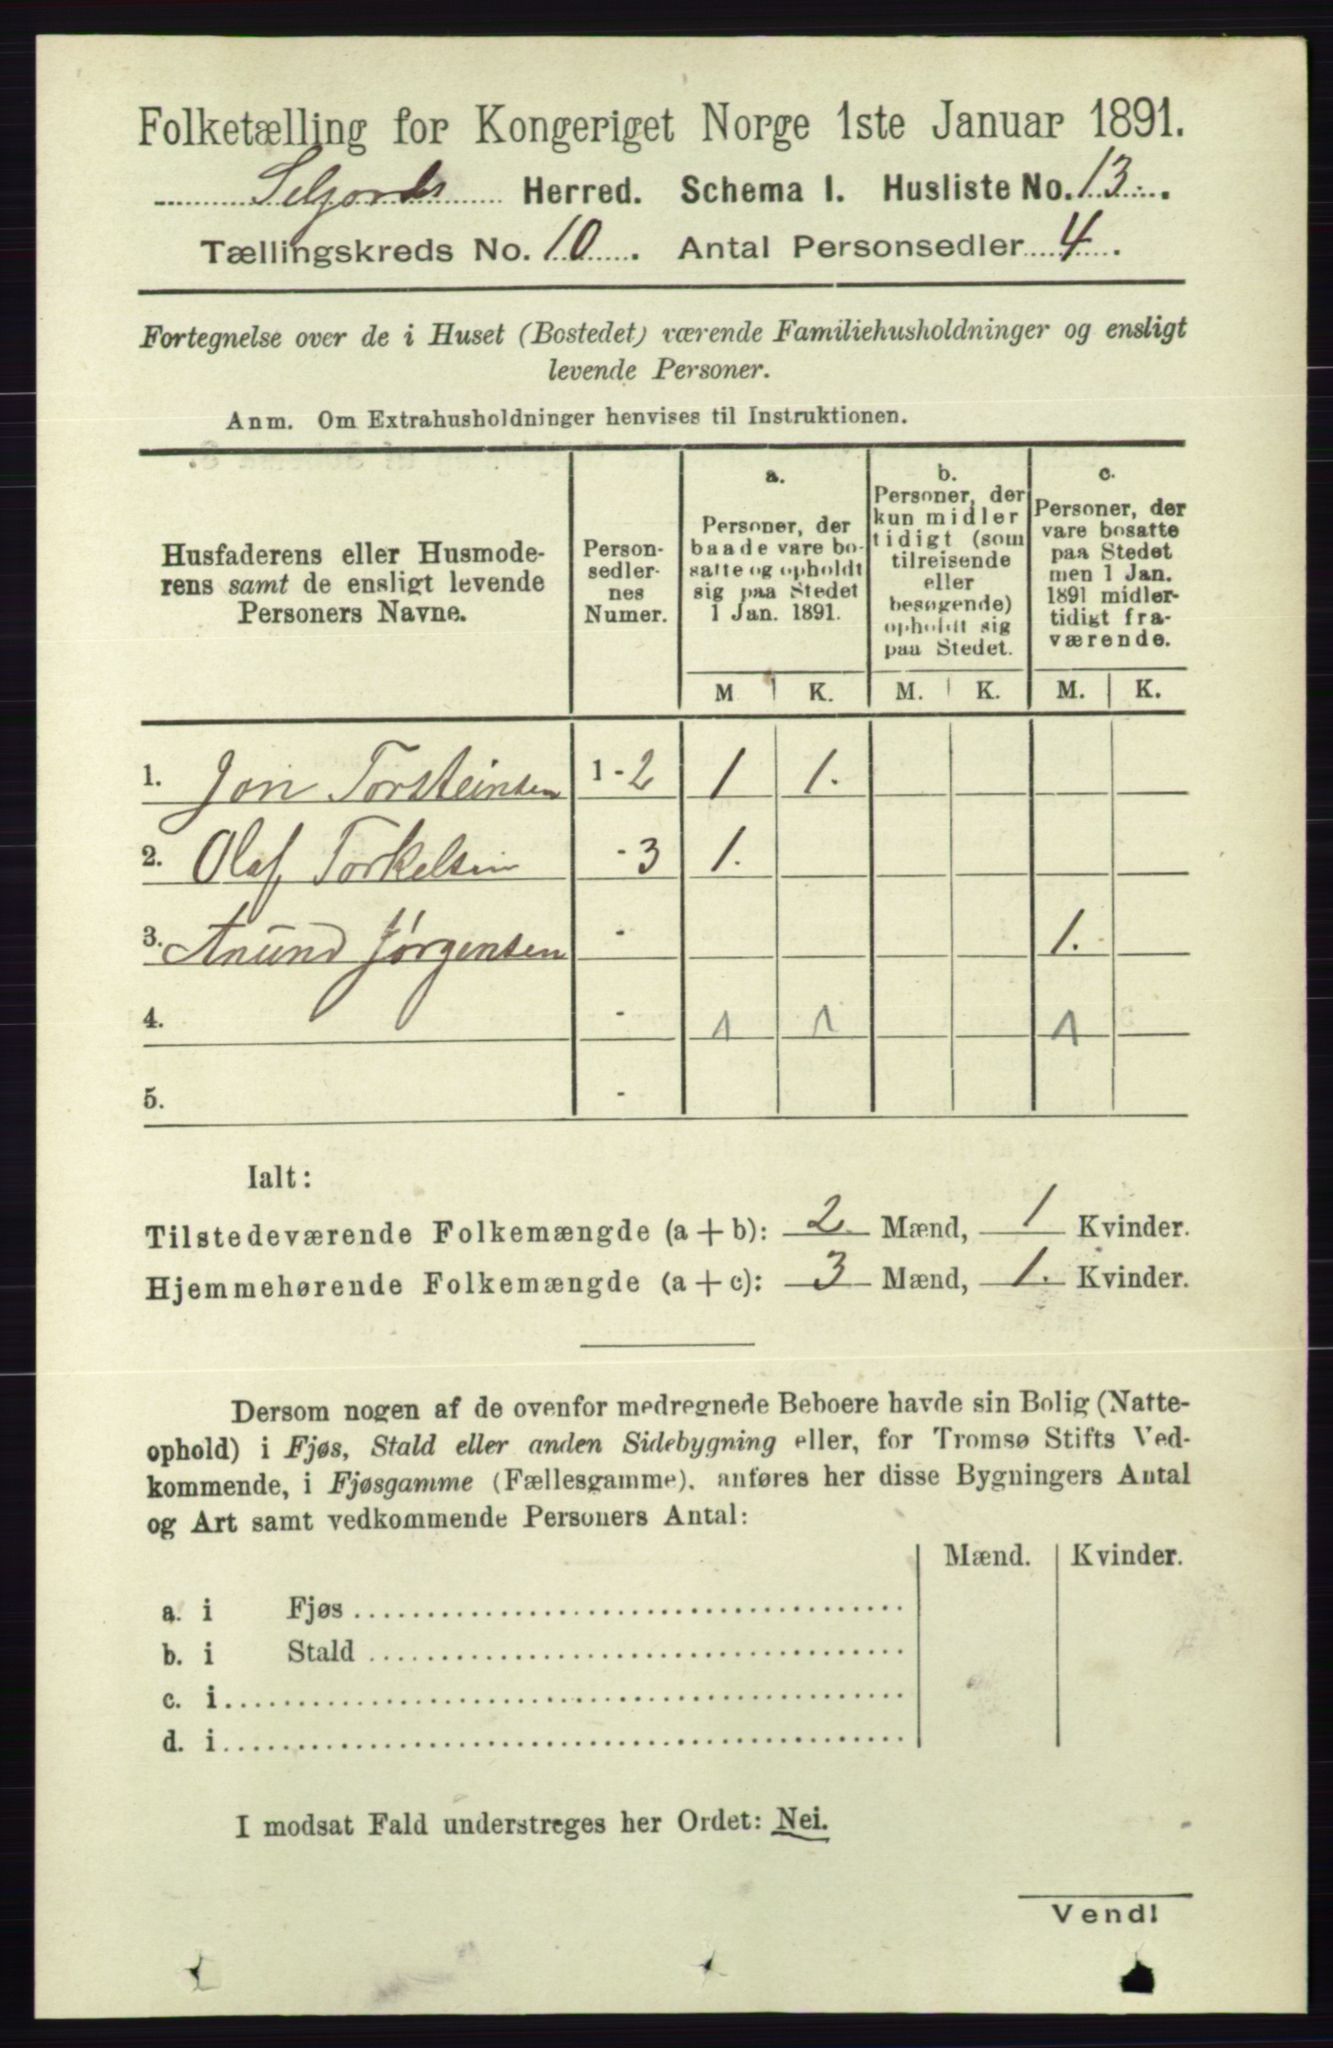 Folketælling for Kongeriget Norge 1ste Januar 1891.
Seljords Herred. Schema 1. Husliste No. 13
Tællingskreds No. 10. Antal Personsedler 4.
Fortegnelse over de i Huset (Bostedet) værende Familiehusholdninger og ensligt
levende Personer.
Anm. Om Extrahusholdninger henvises til Instruktionen.
Husfaderens eller Husmode-
rens samt de ensligt levende
Personers Navne.
Person-
sedler-
nes
Numer.
a.
Personer, der
baade vare bo-
satte og opholdt
sig paa Stedet
1 Jan. 1891.
b.
Personer, der
kun midler
tidigt (som
tilreisende
eller
besøgende)
opholdt sig
paa Stedet.
c.
Personer, der
vare bosatte
paa Stedet
men 1 Jan.
1891 midler-
tidigt fra-
værende.
M K. M. K. M. K.
1. Jon Torsteinsen 1 - 2 1 1.
2. Olaf Torkelsen - 3 1.
3. Anund Jørgensen - 1.
4. - 1 1 1
5. -
Ialt:
Tilstedeværende Folkemængde (a + b): 2 Mænd, 1 Kvinder.
Hjemmehørende Folkemængde (a + c): 3 Mænd, 1. Kvinder.
Dersom nogen af de ovenfor medregnede Beboere havde sin Bolig (Natte-
ophold) i Fjøs, Stald eller anden Sidebygning eller, for Tromsø Stifts Ved-
kommende, i Fjøsgamme (Fællesgamme). anføres her disse Bygningers Antal
og Art samt vedkommende Personers Antal:
Mænd. Kvinder.
a. i Fjøs
b. i Stald
c. i
d. i
I modsat Fald understreges her Ordet: Nei.
Vend!